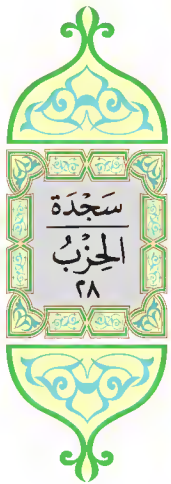 سَجْدَة
الحِزْبُ
٢٨